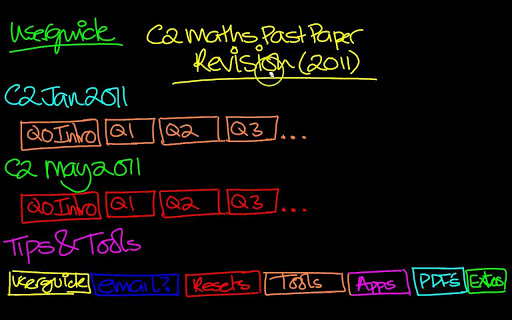 Userguide
C2 Maths Past Paper
Revision (2011)
C2 Jan 2011
Q0Intro Q1 Q2 Q3 ...
C2 May 2011
Q0Intro Q1 Q2 Q3 ...
Tips & Tools
Userguide email? Resets Tools Apps PDFs Extras